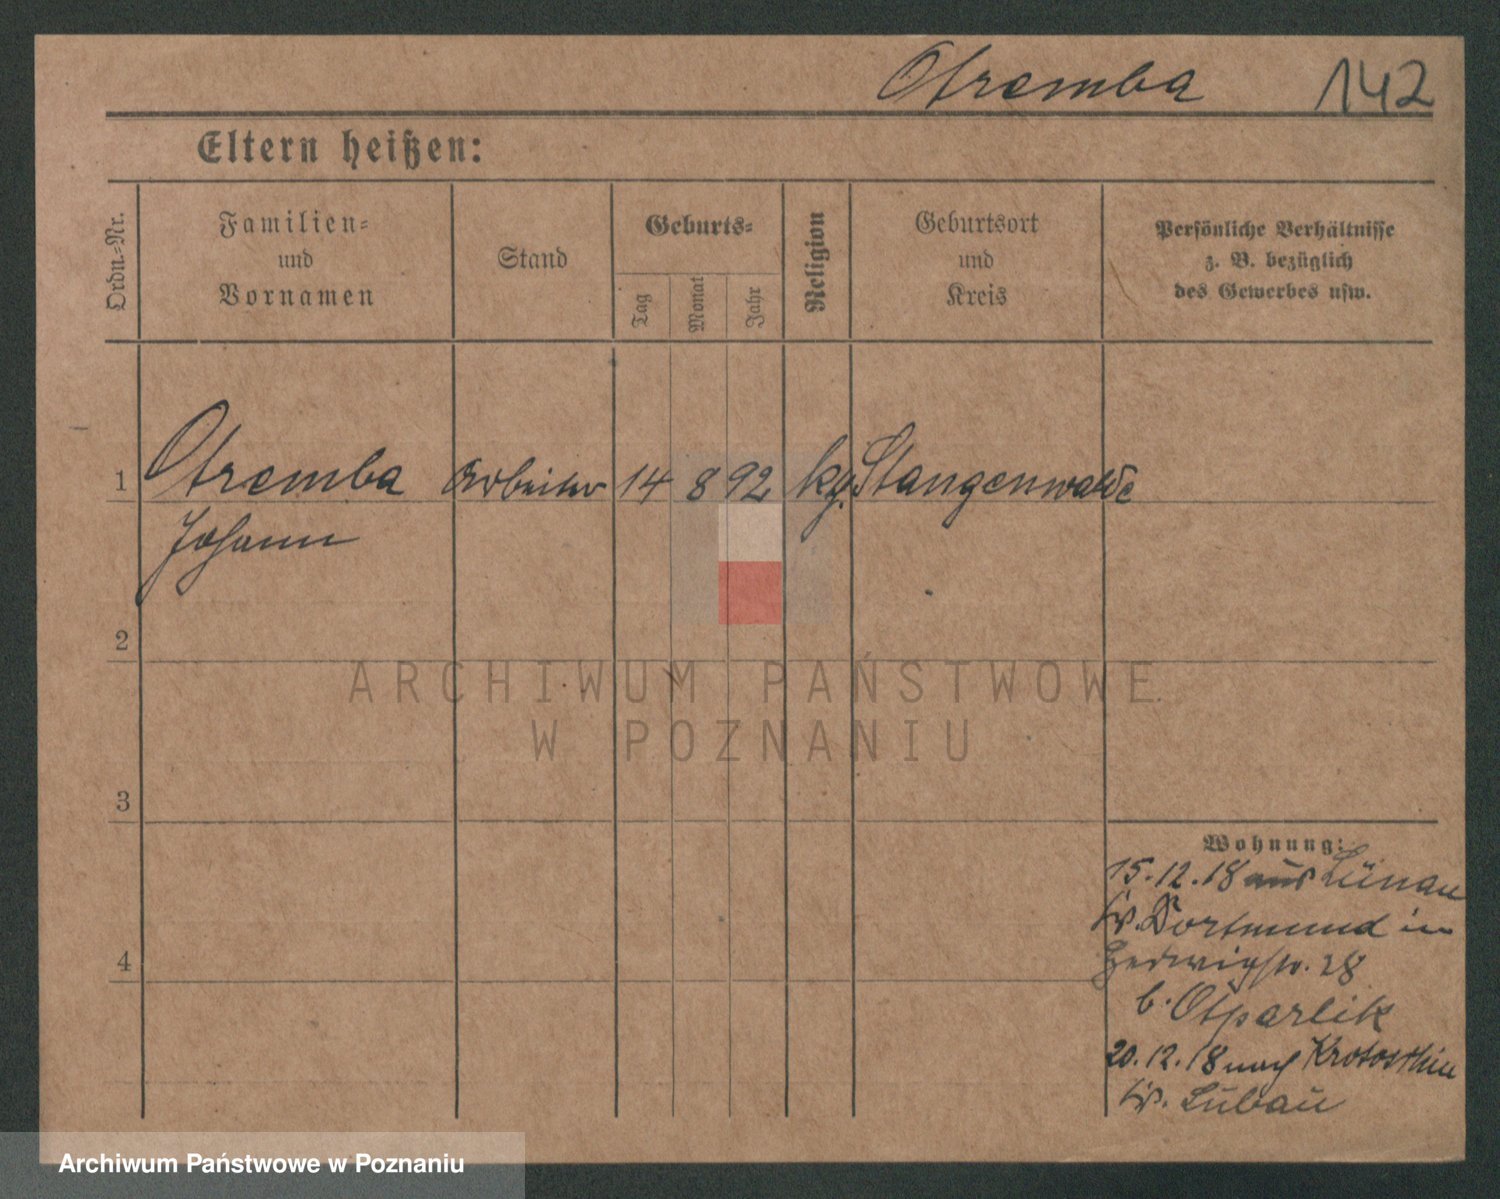 Otremba 142
Eltern heißen:
Ordn.-Nr.
Familien-
und
Vornamen
Stand
Geburts-
Tag
Monat
Jahr
Religion
Geburtsort
und
Kreis
Persönliche Verhältnisse
z. B. bezüglich
des Gewerbes usw.
1 Otremba Arbeiter 14 8 92 kg. Stangenwalde
Johann
2
3
4
ARCHIWUM PAŃSTWOWE
W POZNANIU
Wohnung:
15.12.18 aus Lünau
Kr. Dortmund in
Hedwigstr. 28
b. Otparlik
20.12.18 nach Krotoschin
Kr. Lubau
Archiwum Państwowe w Poznaniu